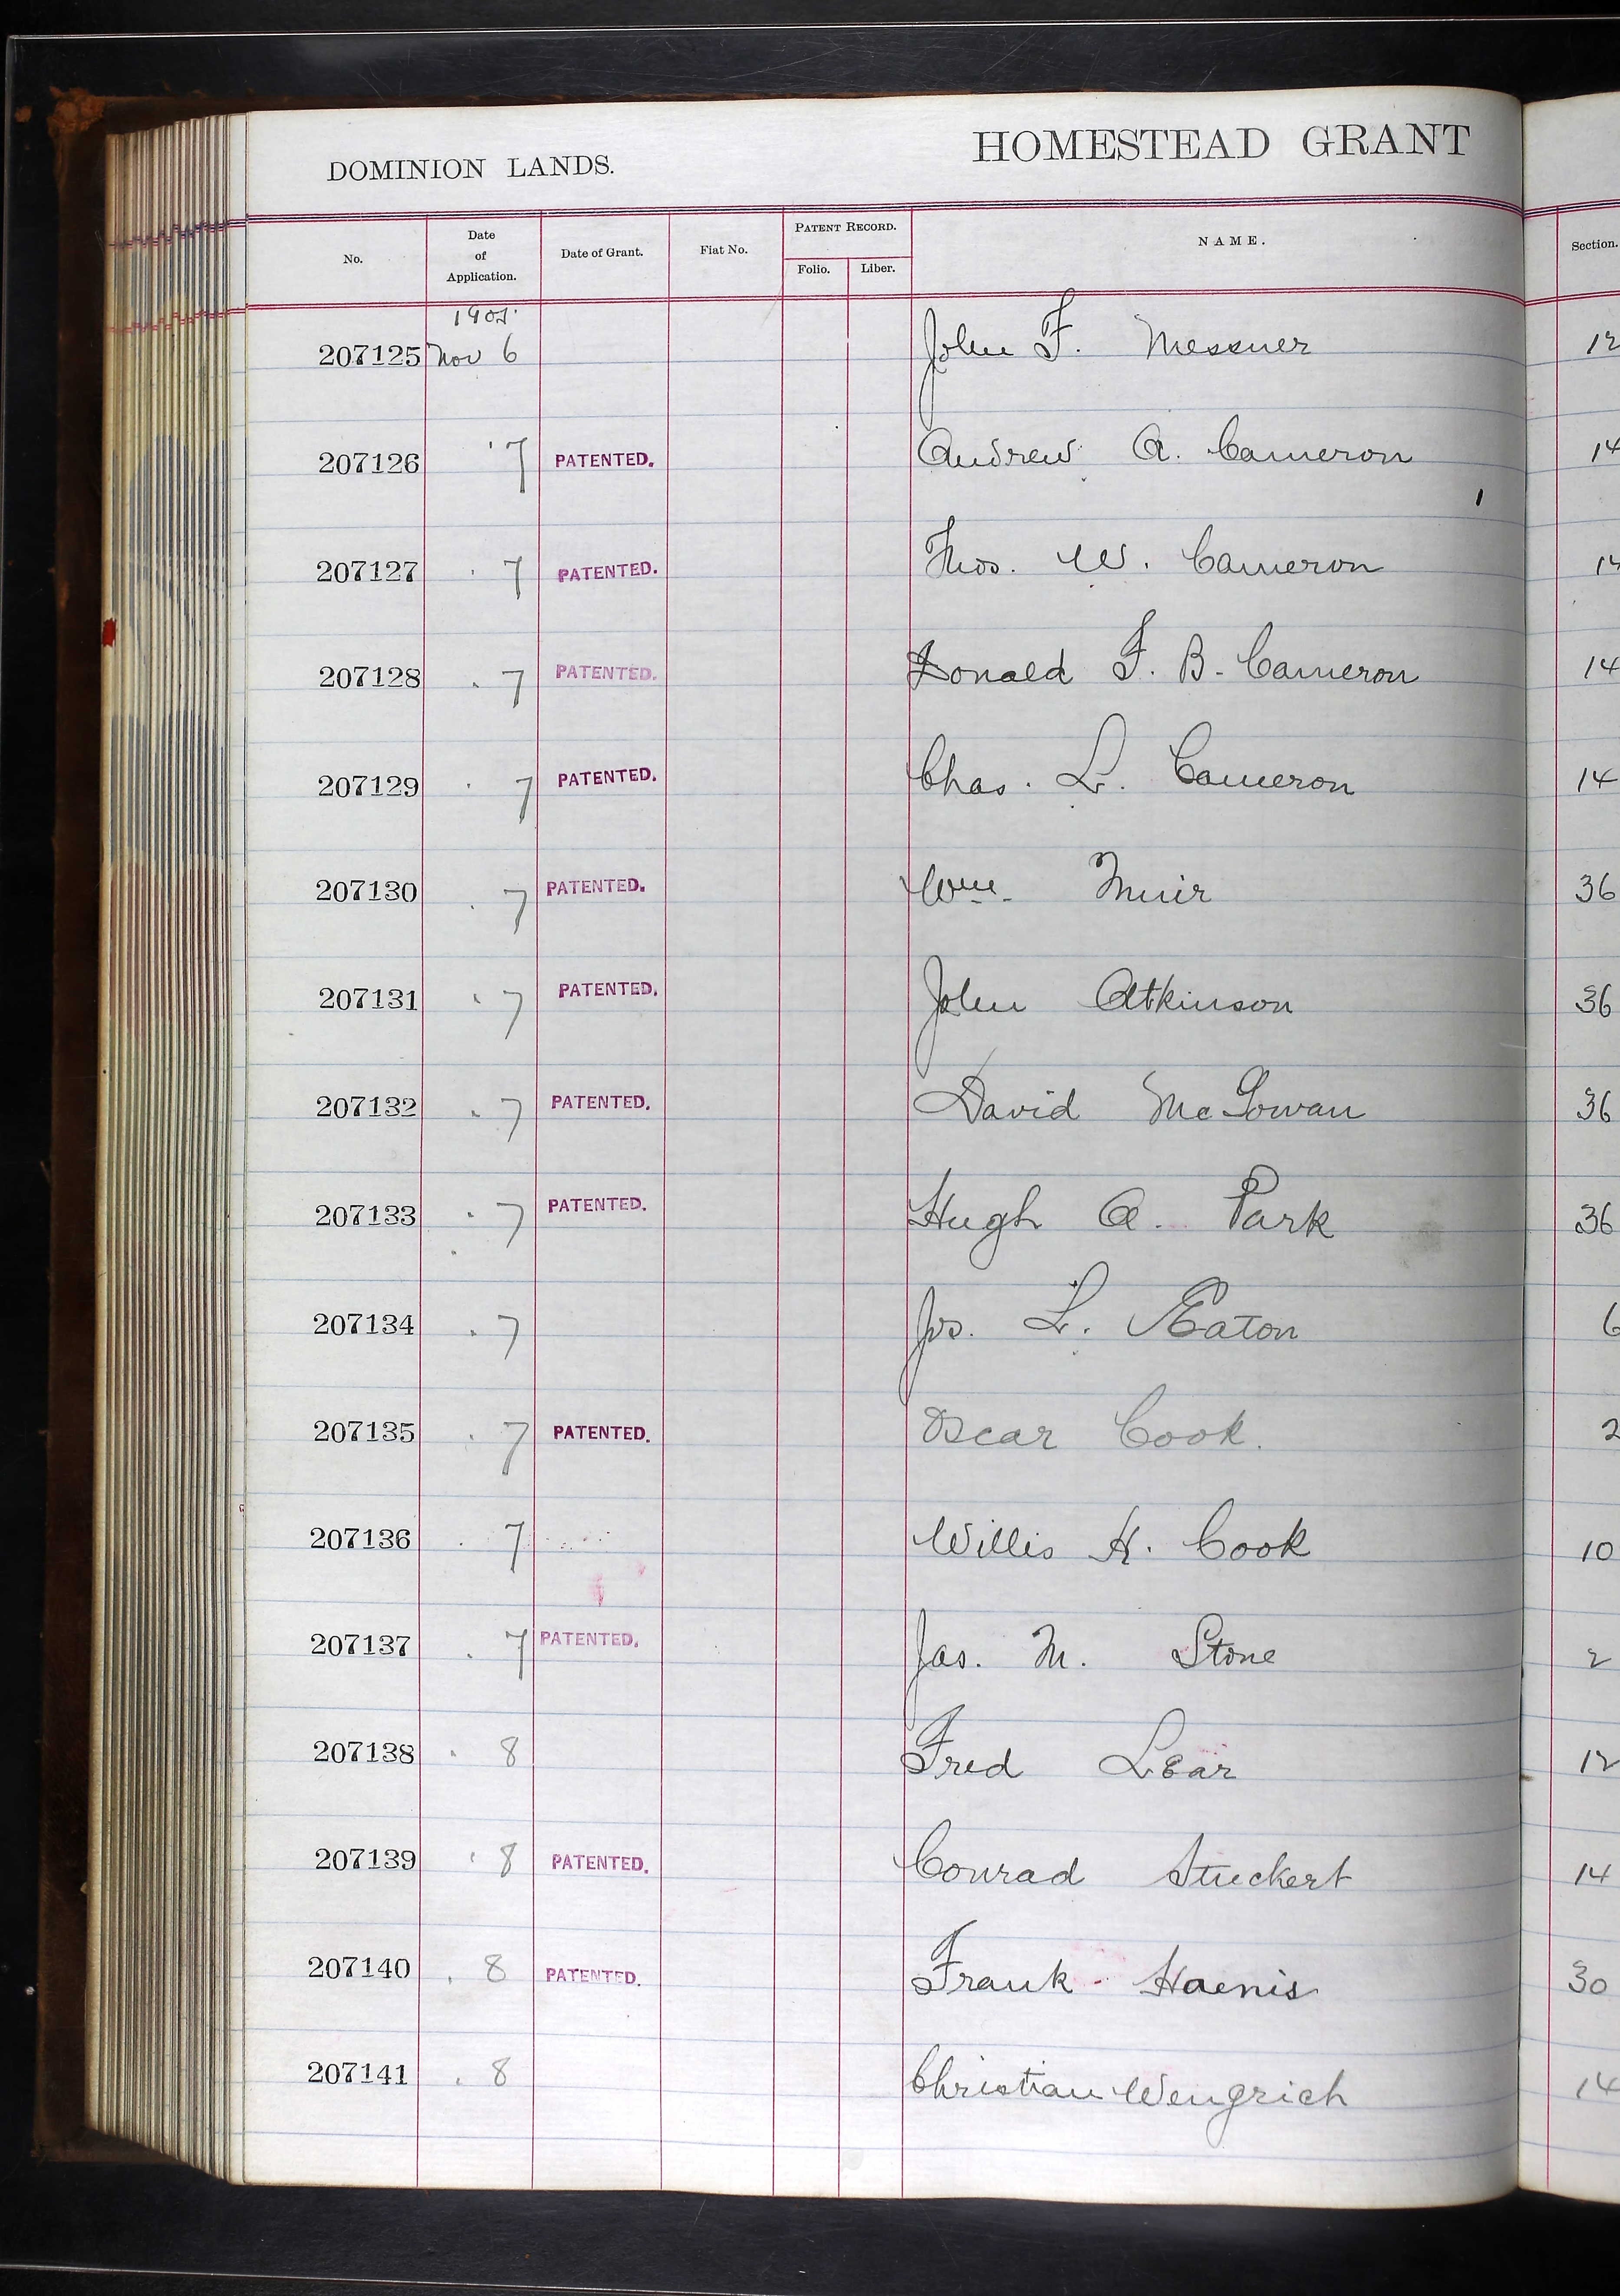 DOMINION LANDS. HOMESTEAD GRANT
No. Date of Application. Date of Grant. Fiat No. PATENT RECORD. Folio. Liber. NAME. Section.
207125 Nov 6 John F. Messner 12
207126 " 7 PATENTED. Andrew A. Cameron 14
207127 . 7 PATENTED. Thos. W. Cameron 14
207128 . 7 PATENTED. Donald F. B. Cameron 14
207129 . 7 PATENTED. Chas. L. Cameron 14
207130 . 7 PATENTED. Wm. Muir 36
207131 . 7 PATENTED. John Atkinson 36
207132 . 7 PATENTED. David McGowan 36
207133 . 7 PATENTED. Hugh A. Park 36
207134 . 7 Jos. L. Eaton 6
207135 . 7 PATENTED. Oscar Cook. 2
207136 . 7 Willis H. Cook 10
207137 . 7 PATENTED. Jas. M. Stone 2
207138 . 8 Fred Lear 12
207139 . 8 PATENTED. Conrad Stuckert 14
207140 . 8 PATENTED. Frank Haenis 30
207141 . 8 Christian Wengrich 14